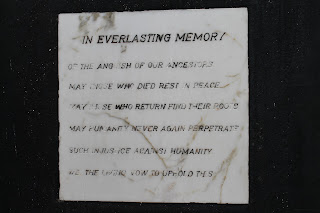 IN EVERLASTING MEMORY
OF THE ANGUISH OF OUR ANCESTORS
MAY THOSE WHO DIED REST IN PEACE
MAY THOSE WHO RETURN FIND THEIR ROOTS
MAY HUMANITY NEVER AGAIN PERPETRATE
SUCH INJUSTICE AGAINST HUMANITY
WE THE LIVING VOW TO UPHOLD THIS